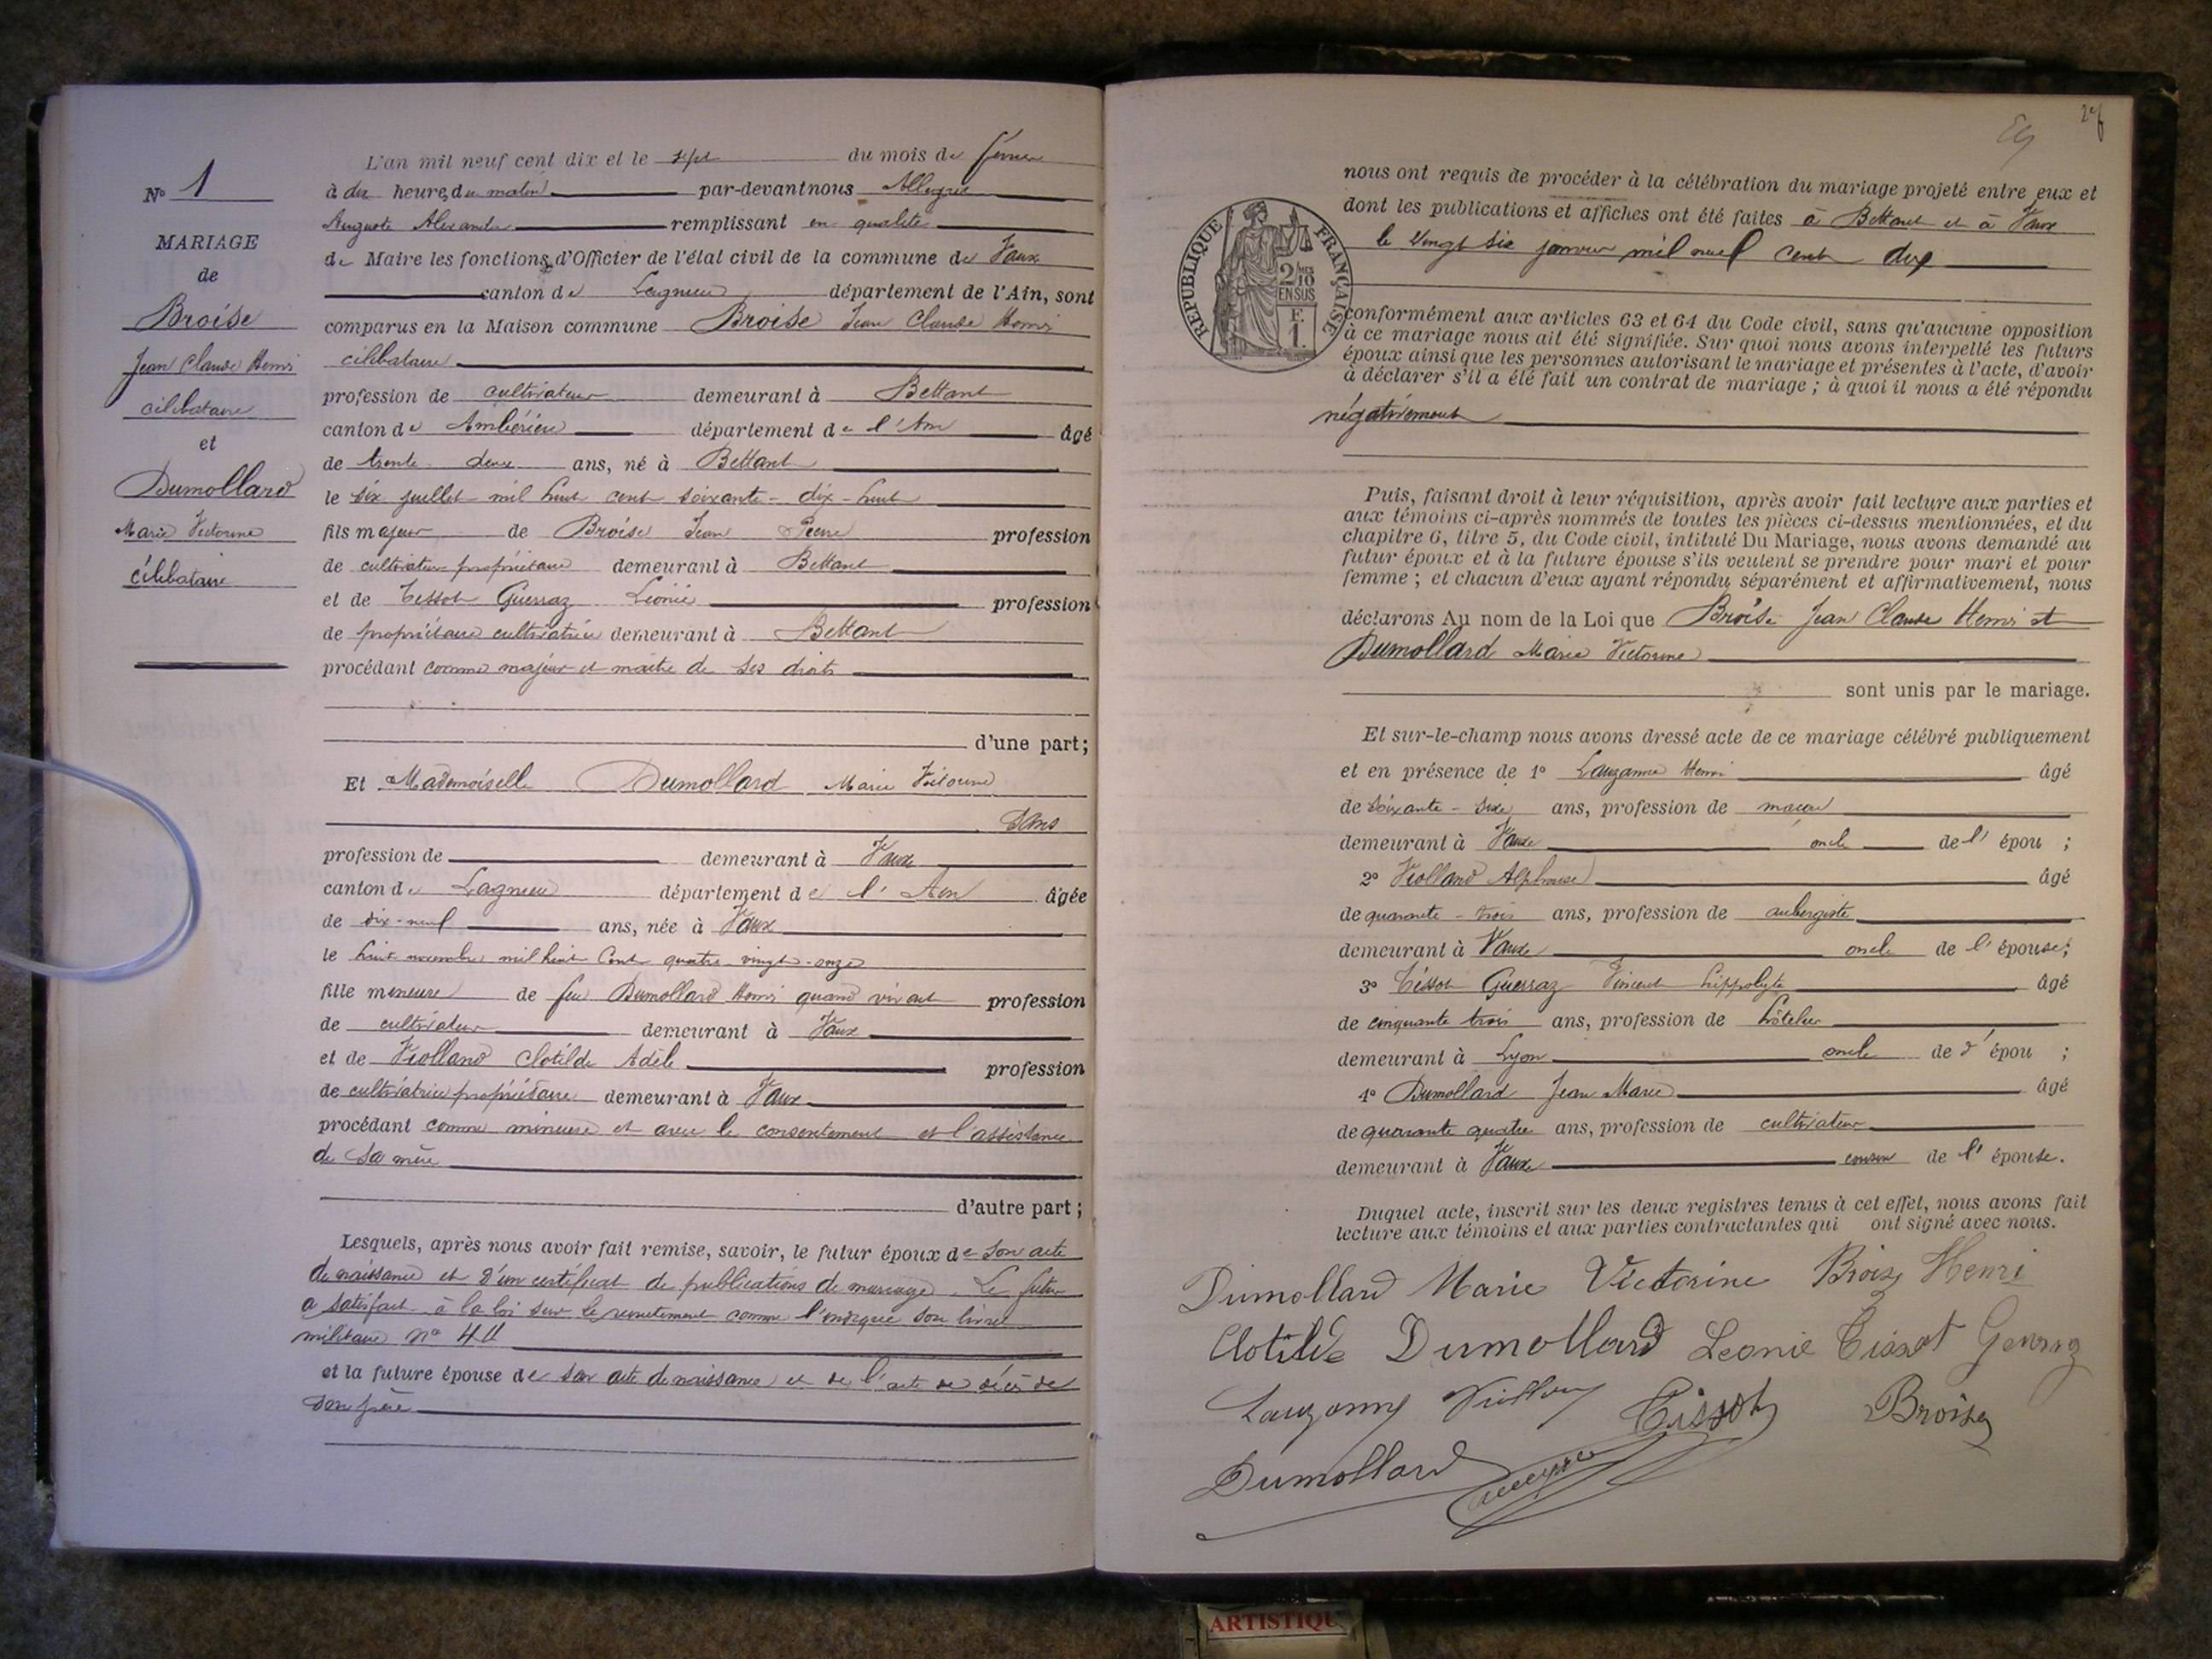 L'an mil neuf cent dix et le sept du mois de février
N° 1
à dix heures du matin par-devant nous Allegret
Auguste Alexandre remplissant en qualité
MARIAGE
de
de Maire les fonctions d'Officier de l'état civil de la commune de Vaux
canton de Lagnieu département de l'Ain, sont
Broise
Jean Claude Henri
célibataire
et
Dumollard
Marie Victorine
célibataire
comparus en la Maison commune Broise Jean Claude Henri
célibataire
profession de cultivateur demeurant à Bettant
canton de Ambérieu département de l'Ain âgé
de trente deux ans, né à Bettant
le six juillet mil huit cent soixante-dix-huit
fils majeur de Broise Jean Pierre profession
de cultivateur propriétaire demeurant à Bettant
et de Tissot Guerraz Léonie profession
de propriétaire cultivatrice demeurant à Bettant
procédant comme majeur et maître de ses droits
d'une part;
Et Mademoiselle Dumollard Marie Victorine
Sans
profession de demeurant à Vaux
canton de Lagnieu département de l'Ain âgée
de dix-neuf ans, née à Vaux
le huit novembre mil huit cent quatre-vingt-onze
fille mineure de feu Dumollard Henri quand vivait profession
de cultivateur demeurant à Vaux
et de Violland Clotilde Adèle profession
de cultivatrice propriétaire demeurant à Vaux
procédant comme mineure et avec le consentement et l'assistance
de sa mère
d'autre part;
Lesquels, après nous avoir fait remise, savoir, le futur époux de son acte
de naissance et d'un certificat de publications de mariage. Le futur
a satisfait à la loi sur le recrutement comme l'indique son livret
militaire n°
et la future épouse de son acte de naissance et de l'acte de décès de
son père
nous ont requis de procéder à la célébration du mariage projeté entre eux et
dont les publications et affiches ont été faites à Bettant et à Vaux
le vingt six janvier mil neuf cent dix
RÉPUBLIQUE FRANÇAISE
2/10 EN SUS
F.
1.
conformément aux articles 63 et 64 du Code civil, sans qu'aucune opposition
à ce mariage nous ait été signifiée. Sur quoi nous avons interpellé les futurs
époux ainsi que les personnes autorisant le mariage et présentes à l'acte, d'avoir
à déclarer s'il a été fait un contrat de mariage ; à quoi il nous a été répondu
négativement
Puis, faisant droit à leur réquisition, après avoir fait lecture aux parties et
aux témoins ci-après nommés de toutes les pièces ci-dessus mentionnées, et du
chapitre 6, titre 5, du Code civil, intitulé Du Mariage, nous avons demandé au
futur époux et à la future épouse s'ils veulent se prendre pour mari et pour
femme ; et chacun d'eux ayant répondu séparément et affirmativement, nous
déclarons Au nom de la Loi que Broise Jean Claude Henri et
Dumollard Marie Victorine
sont unis par le mariage.
Et sur-le-champ nous avons dressé acte de ce mariage célébré publiquement
et en présence de 1° Lauzanne Henri âgé
de soixante-six ans, profession de maçon
demeurant à Vaux oncle de l'épou ;
2° Violland Alphonse âgé
de quarante-trois ans, profession de aubergiste
demeurant à Vaux oncle de l'épouse;
3° Tissot Guerraz Vincent hippolyte âgé
de cinquante trois ans, profession de hôtelier
demeurant à Lyon oncle de d'épou ;
4° Dumollard Jean Marie âgé
de quarante quatre ans, profession de cultivateur
demeurant à Vaux cousin de l'épouse.
Duquel acte, inscrit sur les deux registres tenus à cet effet, nous avons fait
lecture aux témoins et aux parties contractantes qui ont signé avec nous.
Dumollard Marie Victorine Broise Henri
Clotilde Dumollard Leonie Tissot
Tissot Broise
Dumollard
ARTISTIQU